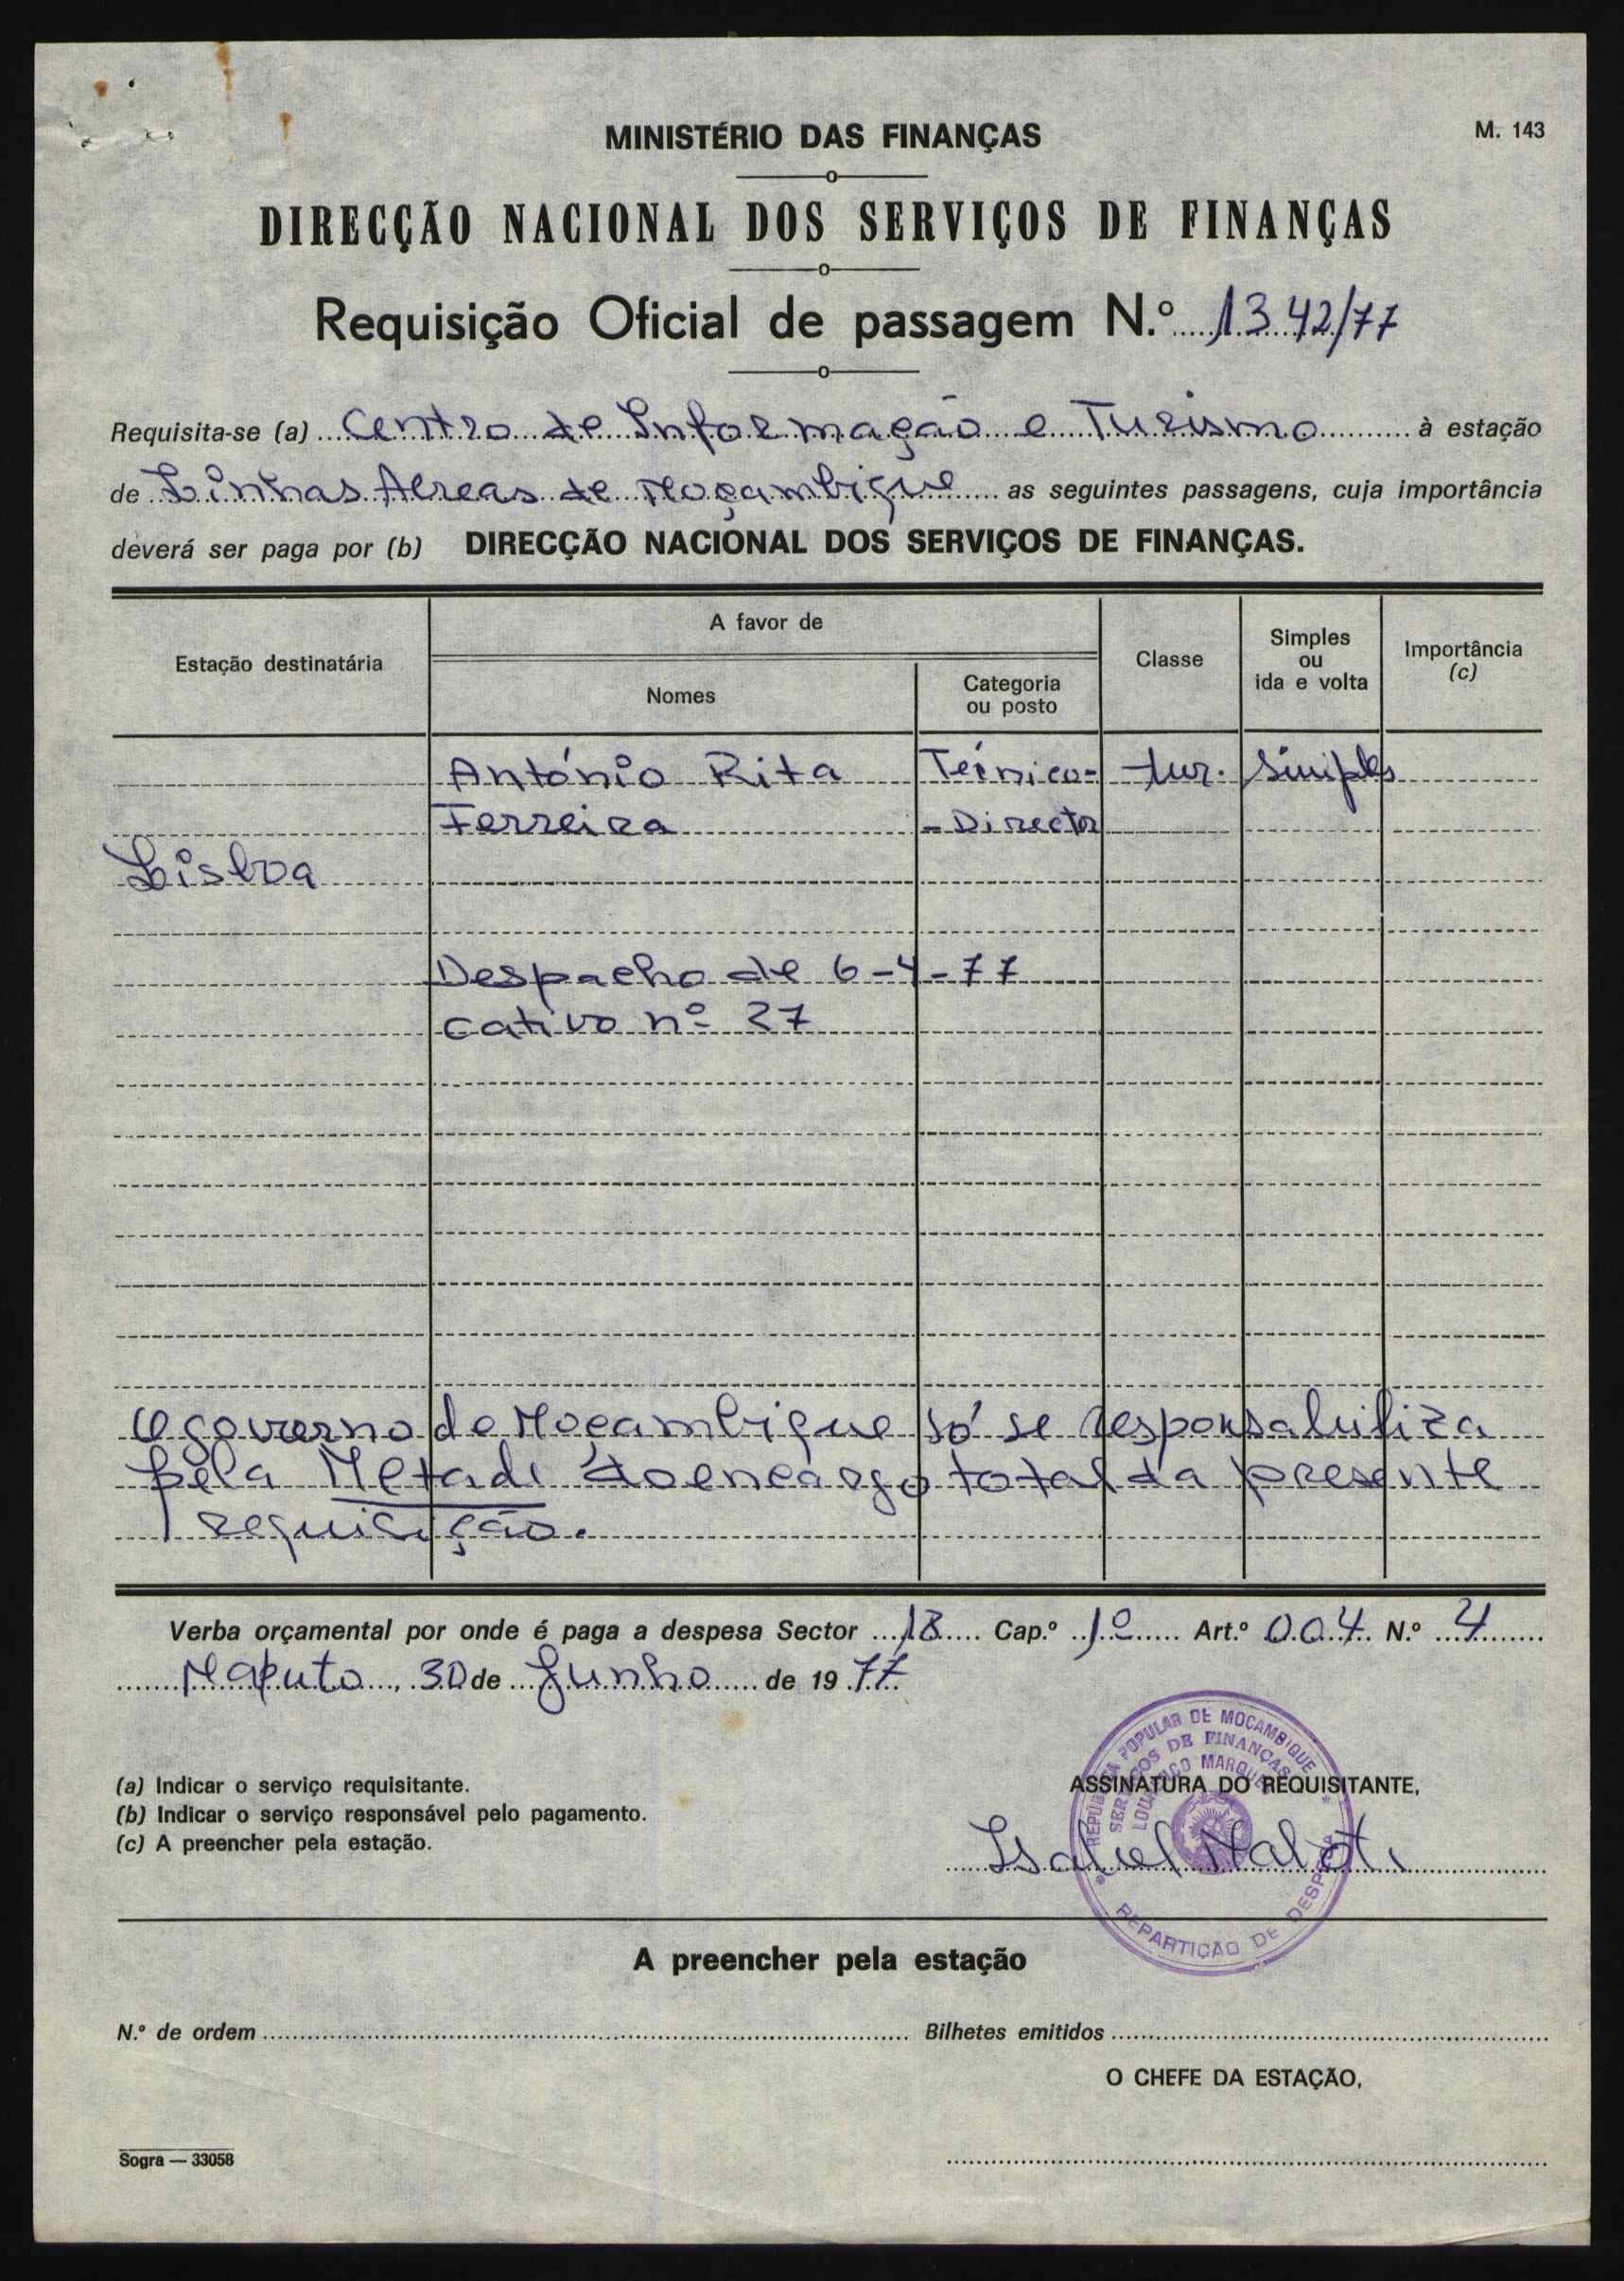 MINISTÉRIO DAS FINANÇAS
M. 143
DIRECÇÃO NACIONAL DOS SERVIÇOS DE FINANÇAS
Requisição Oficial de passagem N.º 1342/77
Requisita-se (a) Centro de Informação e Turismo à estação
de Linhas Aereas de Moçambique as seguintes passagens, cuja importância
deverá ser paga por (b) DIRECÇÃO NACIONAL DOS SERVIÇOS DE FINANÇAS.
Estação destinatária
A favor de
Nomes
Categoria
ou posto
Classe
Simples
ou
ida e volta
Importância
(c)
António Rita Técnico- tur. Simples
Ferreira -Director
Lisboa
Despacho de 6-4-77
cativo nº 27
O governo de Moçambique só se responsabiliza
pela Metade do encargo total da presente
requisição.
Verba orçamental por onde é paga a despesa Sector 18 Cap.º 1º Art.º 004 N.º 4
Maputo, 30 de Junho de 1977
(a) Indicar o serviço requisitante.
(b) Indicar o serviço responsável pelo pagamento.
(c) A preencher pela estação.
REPÚBLICA POPULAR DE MOÇAMBIQUE
SERVIÇOS DE FINANÇAS
LOURENÇO MARQUES
REPARTIÇÃO DE DESPESA
ASSINATURA DO REQUISITANTE,
Isabel
A preencher pela estação
N.º de ordem
Bilhetes emitidos
O CHEFE DA ESTAÇÃO,
Sogra — 33058